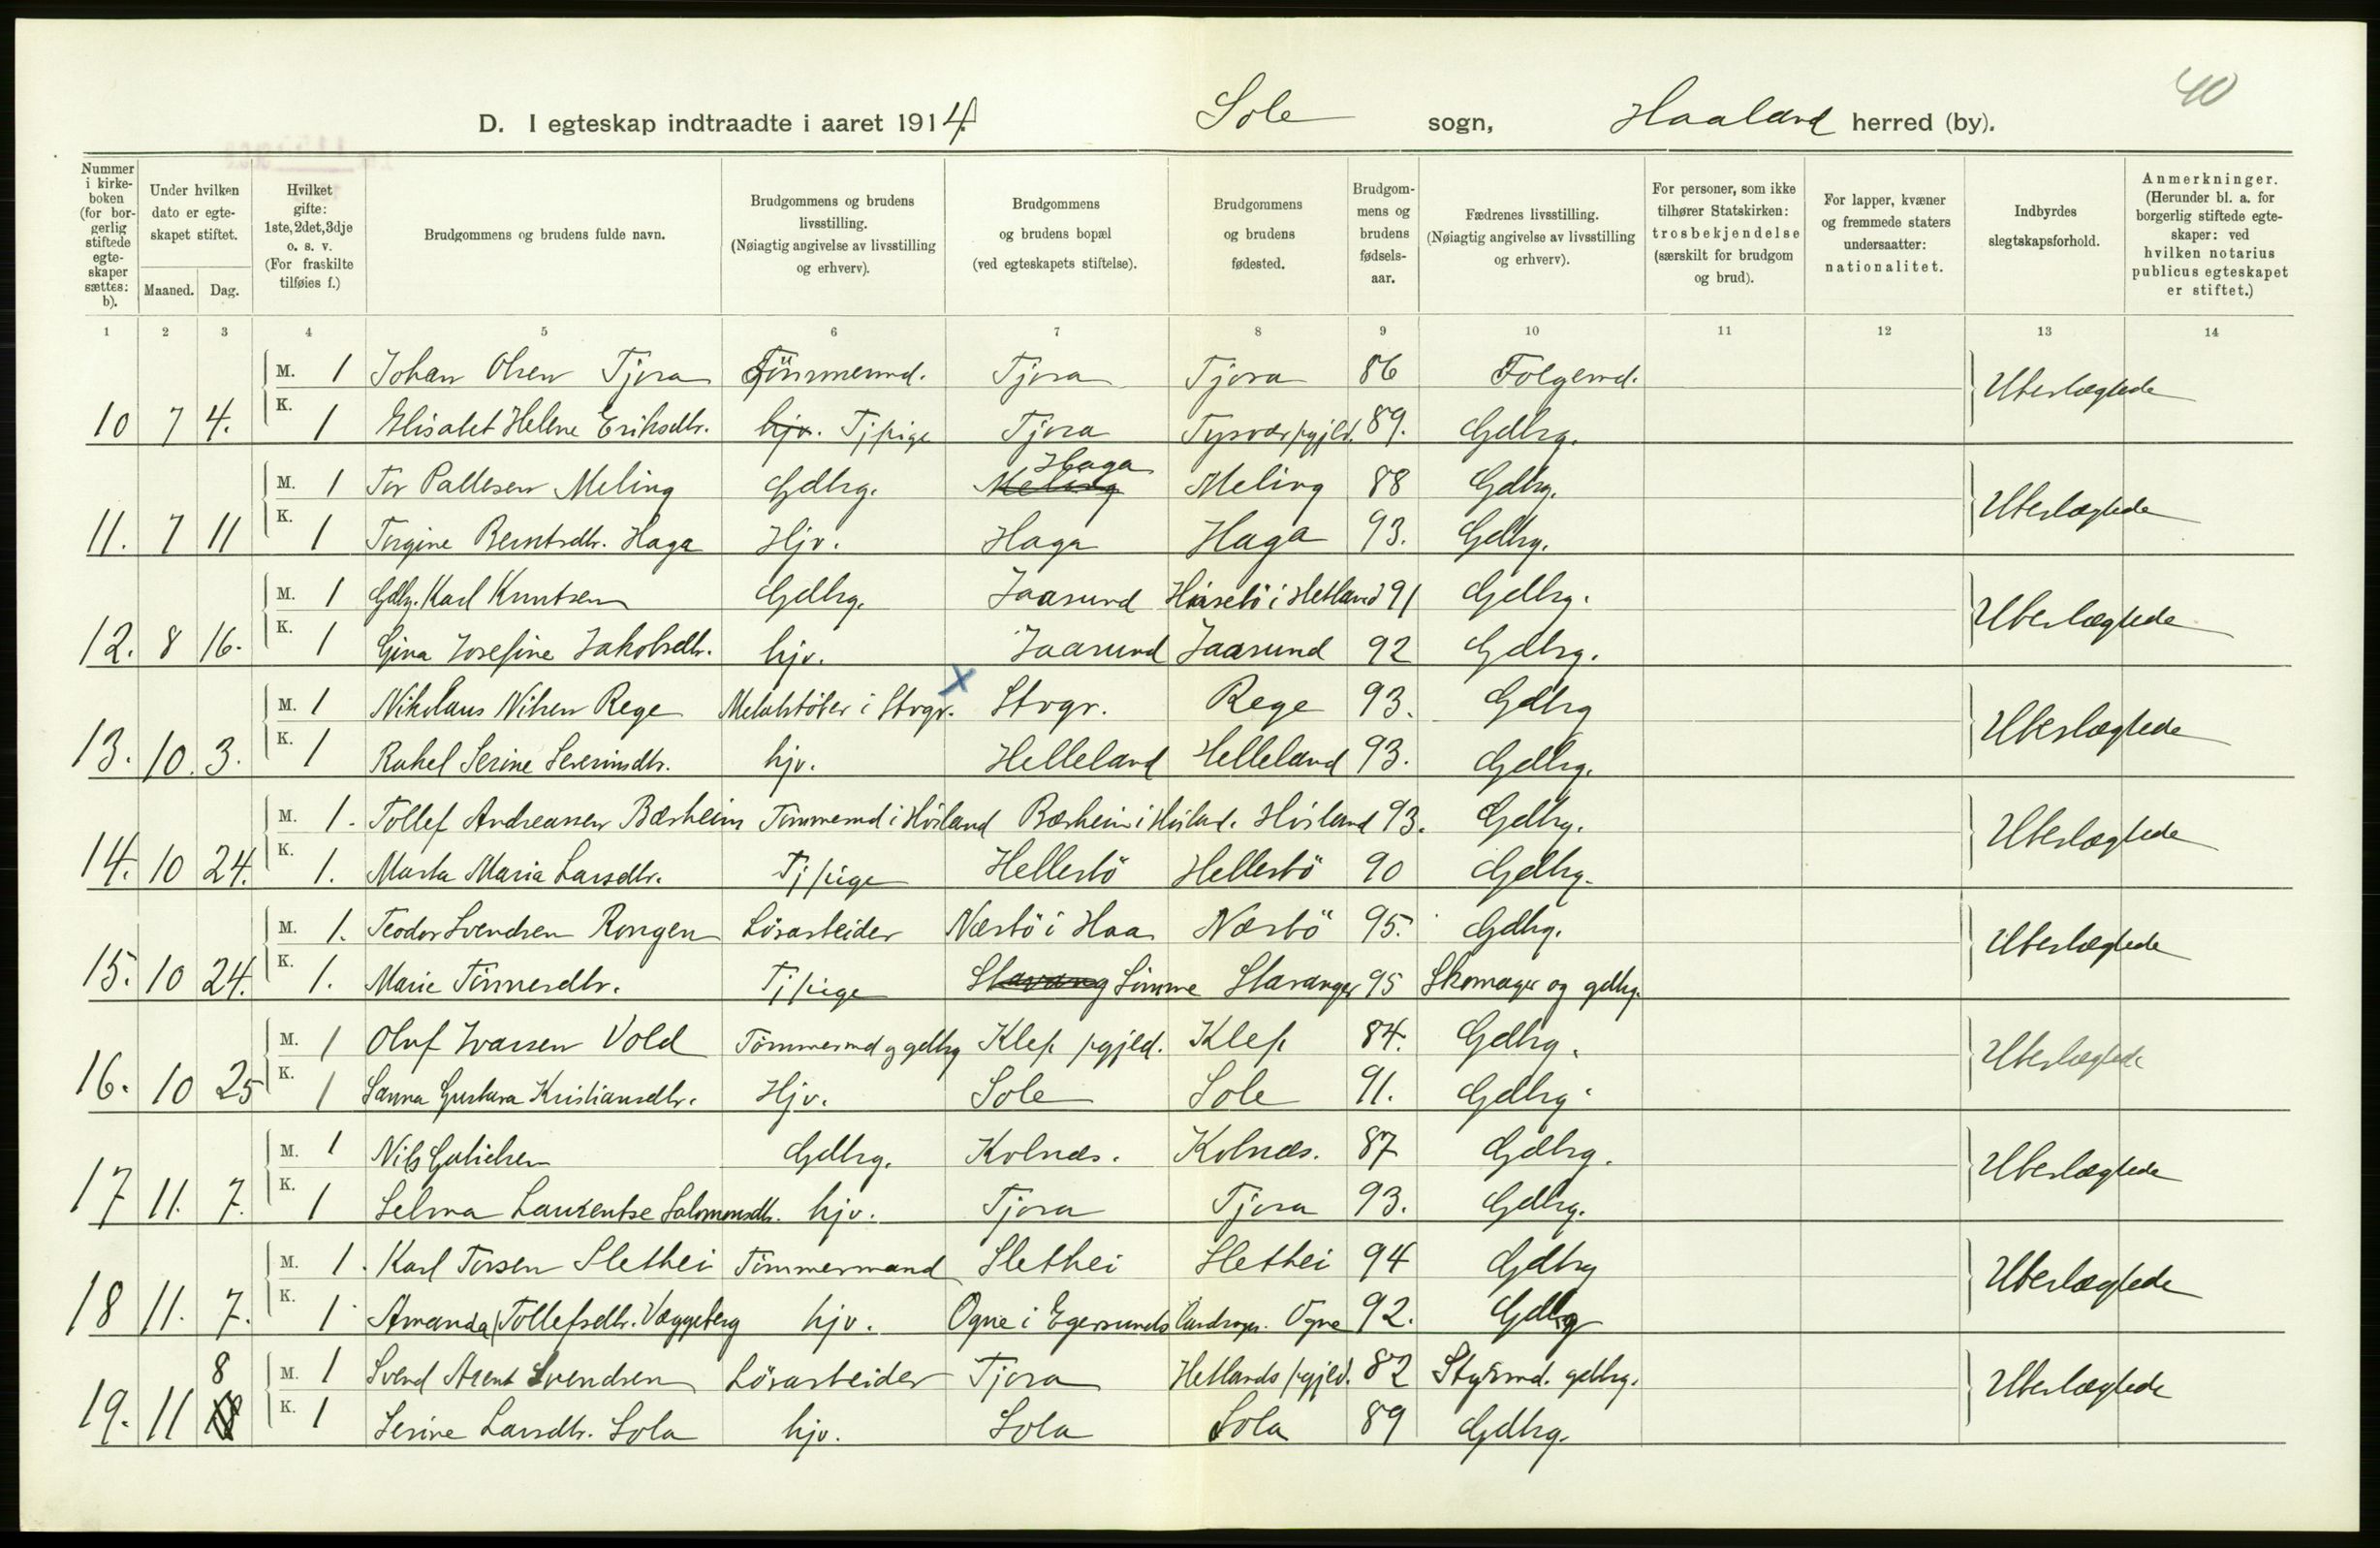 40
D. I egteskap indtraadte i aaret 1914. Sole sogn, Haaland herred (by).
Nummer i kirkeboken (for borgerlig stiftede egteskaper sættes: b).
Under hvilken dato er egteskapet stiftet.
Maaned. Dag.
Hvilket gifte: 1ste, 2det, 3dje o. s. v. (For fraskilte tilføies f.)
Brudgommens og brudens fulde navn.
Brudgommens og brudens livsstilling. (Nøiagtig angivelse av livsstilling og erhverv).
Brudgommens og brudens bopæl (ved egteskapets stiftelse).
Brudgommens og brudens fødested.
Brudgommens og brudens fødselsaar.
Fædrenes livsstilling. (Nøiagtig angivelse av livsstilling og erhverv).
For personer, som ikke tilhører Statskirken: trosbekjendelse (særskilt for brudgom og brud).
For lapper, kvæner og fremmede staters undersaatter: nationalitet.
Indbyrdes slegtskapsforhold.
Anmerkninger. (Herunder bl. a. for borgerlig stiftede egteskaper: ved hvilken notarius publicus egteskapet er stiftet.)
1 2 3 4 5 6 7 8 9 10 11 12 13 14
M. 1 Johan Olsen Tjora Tömmermd. Tjora Tjora 86 Folgemd. Ubeslægtede
10 7 4. K. 1 Elisabet Helene Eriksdtr. hjv. Tj pige Tjora Tysvær pgjld. 89. Gdbrg.
M. 1 Tor Pallesen Meling Gdbrg. Meling Haga Meling 88 Gdbrg. Ubeslægtede
11. 7 11 K. 1 Torgine Berntsdtr. Haga Hjv. Haga Haga 93. Gdbrg.
M. 1 Gdbg. Karl Knutsen Gdbrg. Jaasund i Hetland 91 Gdbrg. Ubeslægtede
12. 8 16. K. 1 Gina Josefine Jakobsdtr. hjv. Jaasund Jaasund 92 Gdbrg.
M. 1 Nikolaus Nilsen Rege Metalstöber i Stvgr. x Stvgr. Rege 93. Gdbrg Ubeslægtede
13. 10. 3. K. 1 Rakel Serine Severinsdtr. hjv. Helleland Helleland 93. Gdbrg.
M. 1. Tollef Andreassen Bærheim Tömmermd i Höiland Bærheim i Höiland. Höiland 93. Gdbrg. Ubeslægtede
14. 10 24. K. 1. Marta Maria Larsdtr. Tj pige Hellestö Hellestö 90 Gdbrg.
M. 1. Teodor Svendsen Rongen Lösarbeider Nærbö i Haa Nærbö 95. Gdbrg. Ubeslægtede
15. 10 24. K. 1. Marie Tönnesdtr. Tj pige Stavang Sömme Stavanger 95 Skomager og gdbrg.
M. 1 Oluf Ivarsen Vold Tömmermd og gdbrg Klep pgjeld. Klep 84. Gdbrg. Ubeslægtede
16. 10 25 K. 1 Sanna Gustava Kristiansdtr. Hjv. Sole Sole 91. Gdbrg.
M. 1 Nils Gabrielsen Gdbrg. Kolnæs. Kolnæs. 87 Gdbrg. Ubeslægtede
17 11. 7. K. 1 Selma Laurentse Salomonsdtr. hjv. Tjora Tjora 93. Gdbrg.
M. 1. Karl Torsen Slethei Tömmermand Slethei Slethei 94 Gdbrg Ubeslægtede
18 11. 7. K. 1 Amanda Tollefsdtr. Væggeberg hjv. Ogne i Egersunds Landsogn. Ogne 92. Gdbrg
M. 1 Svend Arent Svendsen Lösarbeider Tjora Hetlands pgjld. 82 Styrmd. gdbrg. Ubeslægtede
19. 11 8 K. 1 Serine Larsdtr. Sola hjv. Sola Sola 89 Gdbrg.